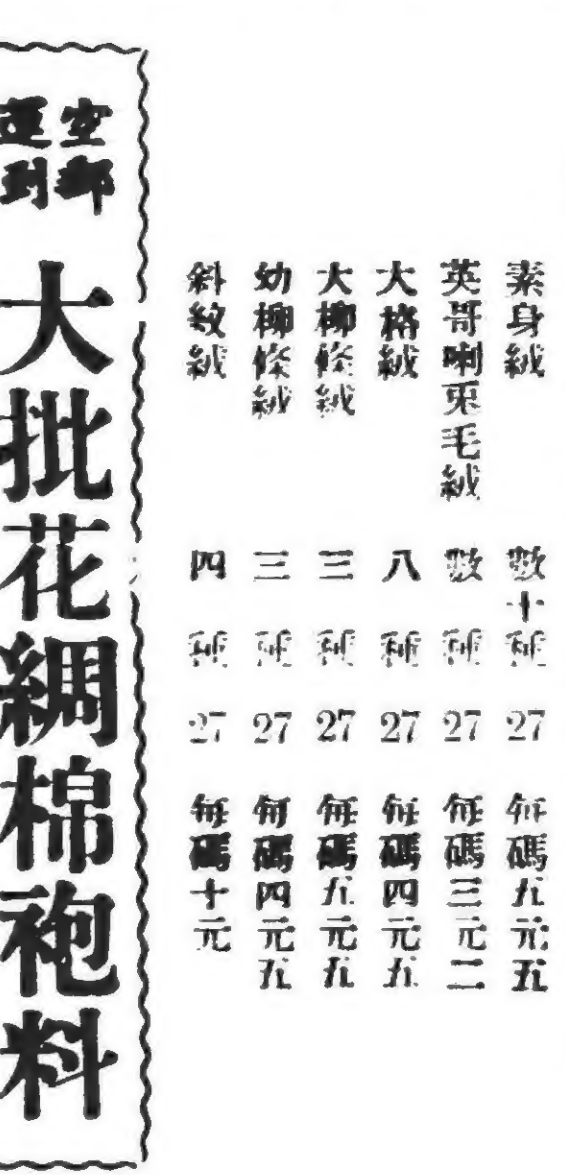 素身絨 數十種 27 每碼五元五
英哥喇䓶毛絨 數種 27 每碼三元二
大格絨 八種 27 每碼四元五
大柳條絨 三種 27 每碼五元五
幼柳條絨 三種 27 每碼四元五
斜紋絨 四種 27 每碼十元
空郵
運到
大批花綢棉袍料